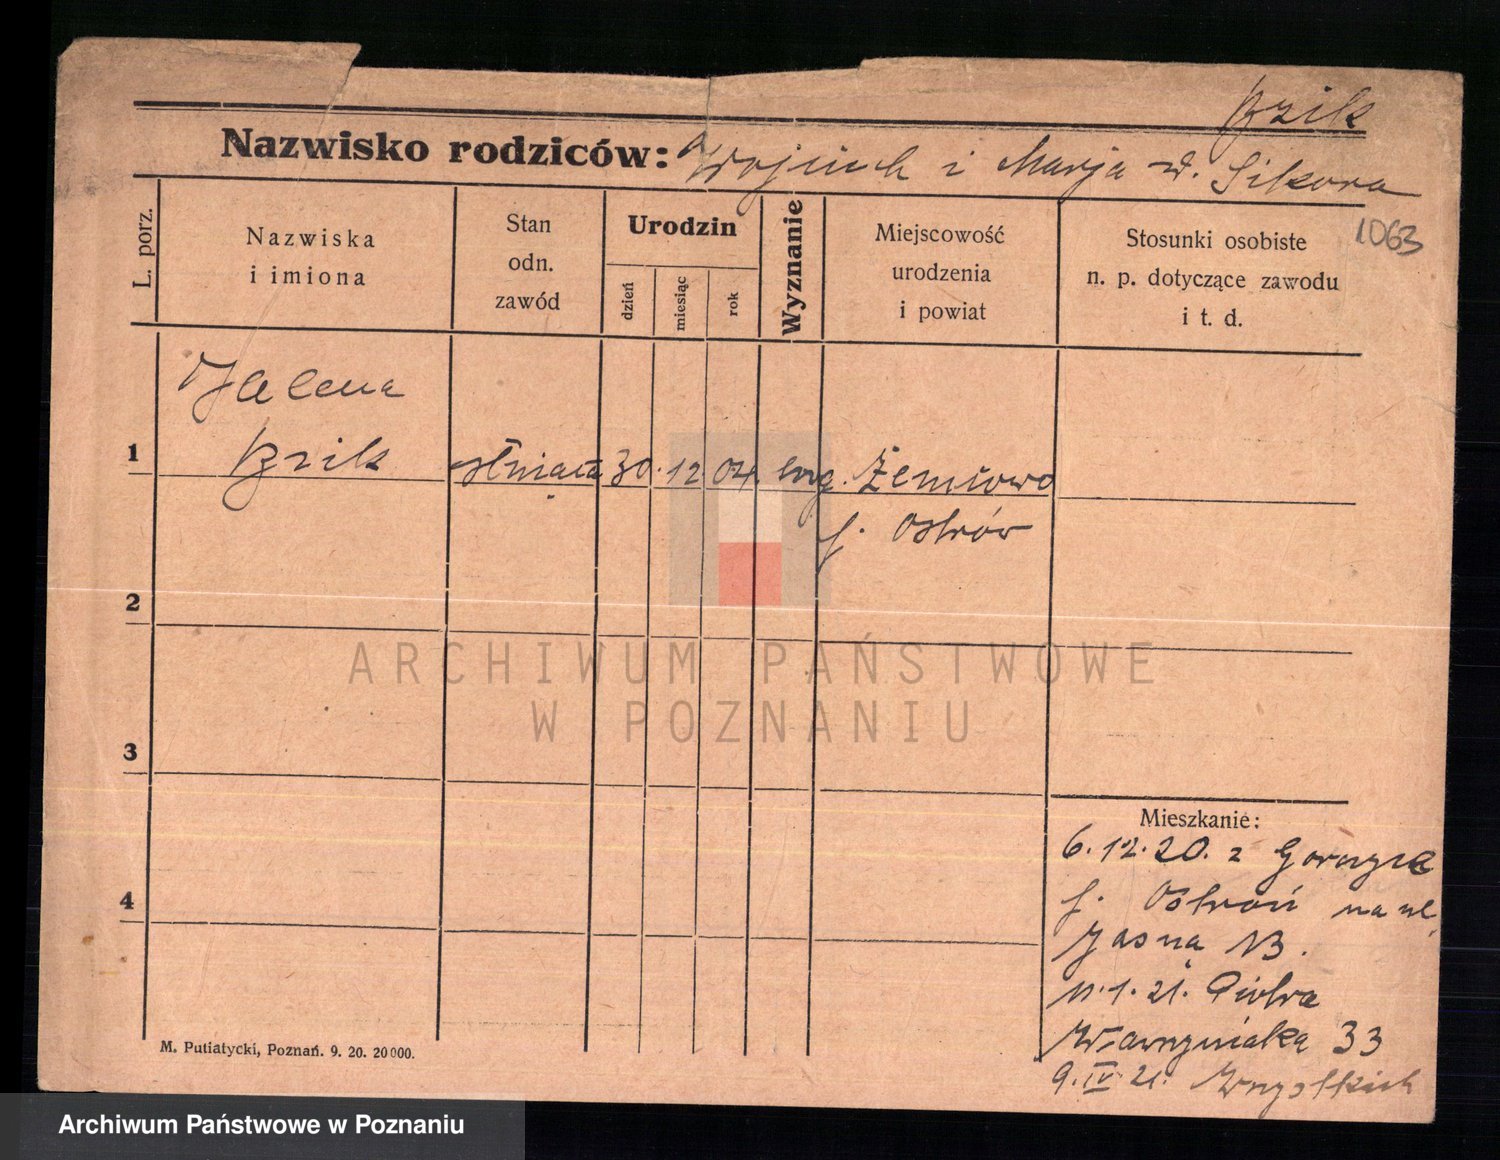 Bzik
Nazwisko rodziców: Wojciech i Marja d. Sikora
1063
L. porz.
Nazwiska
i imiona
Stan
odn.
zawód
Urodzin
dzień
miesiąc
rok
Wyznanie
Miejscowość
urodzenia
i powiat
Stosunki osobiste
n. p. dotyczące zawodu
i t. d.
Helena
1 Bzik służąca 30. 12. 04.
p. Ostrów
2
ARCHIWUM PAŃSTWOWE
W POZNANIU
3
4
Mieszkanie:
6.12.20. z
p. Ostrów na ul.
Jasna 13.
11.1.21. Piotra
Wawrzyniaka 33
9.IV.21.
M. Putiatycki, Poznań. 9. 20. 20000.
Archiwum Państwowe w Poznaniu